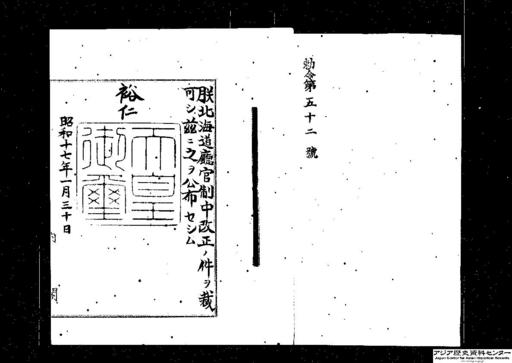 勅令第五十二號
朕北海道廳官制中改正ノ件ヲ裁
可シ茲ニ之ヲ公布セシム
裕仁
天皇
御璽
昭和十七年一月三十日
内閣
アジア歴史資料センター
Japan Center for Asian Historical Records